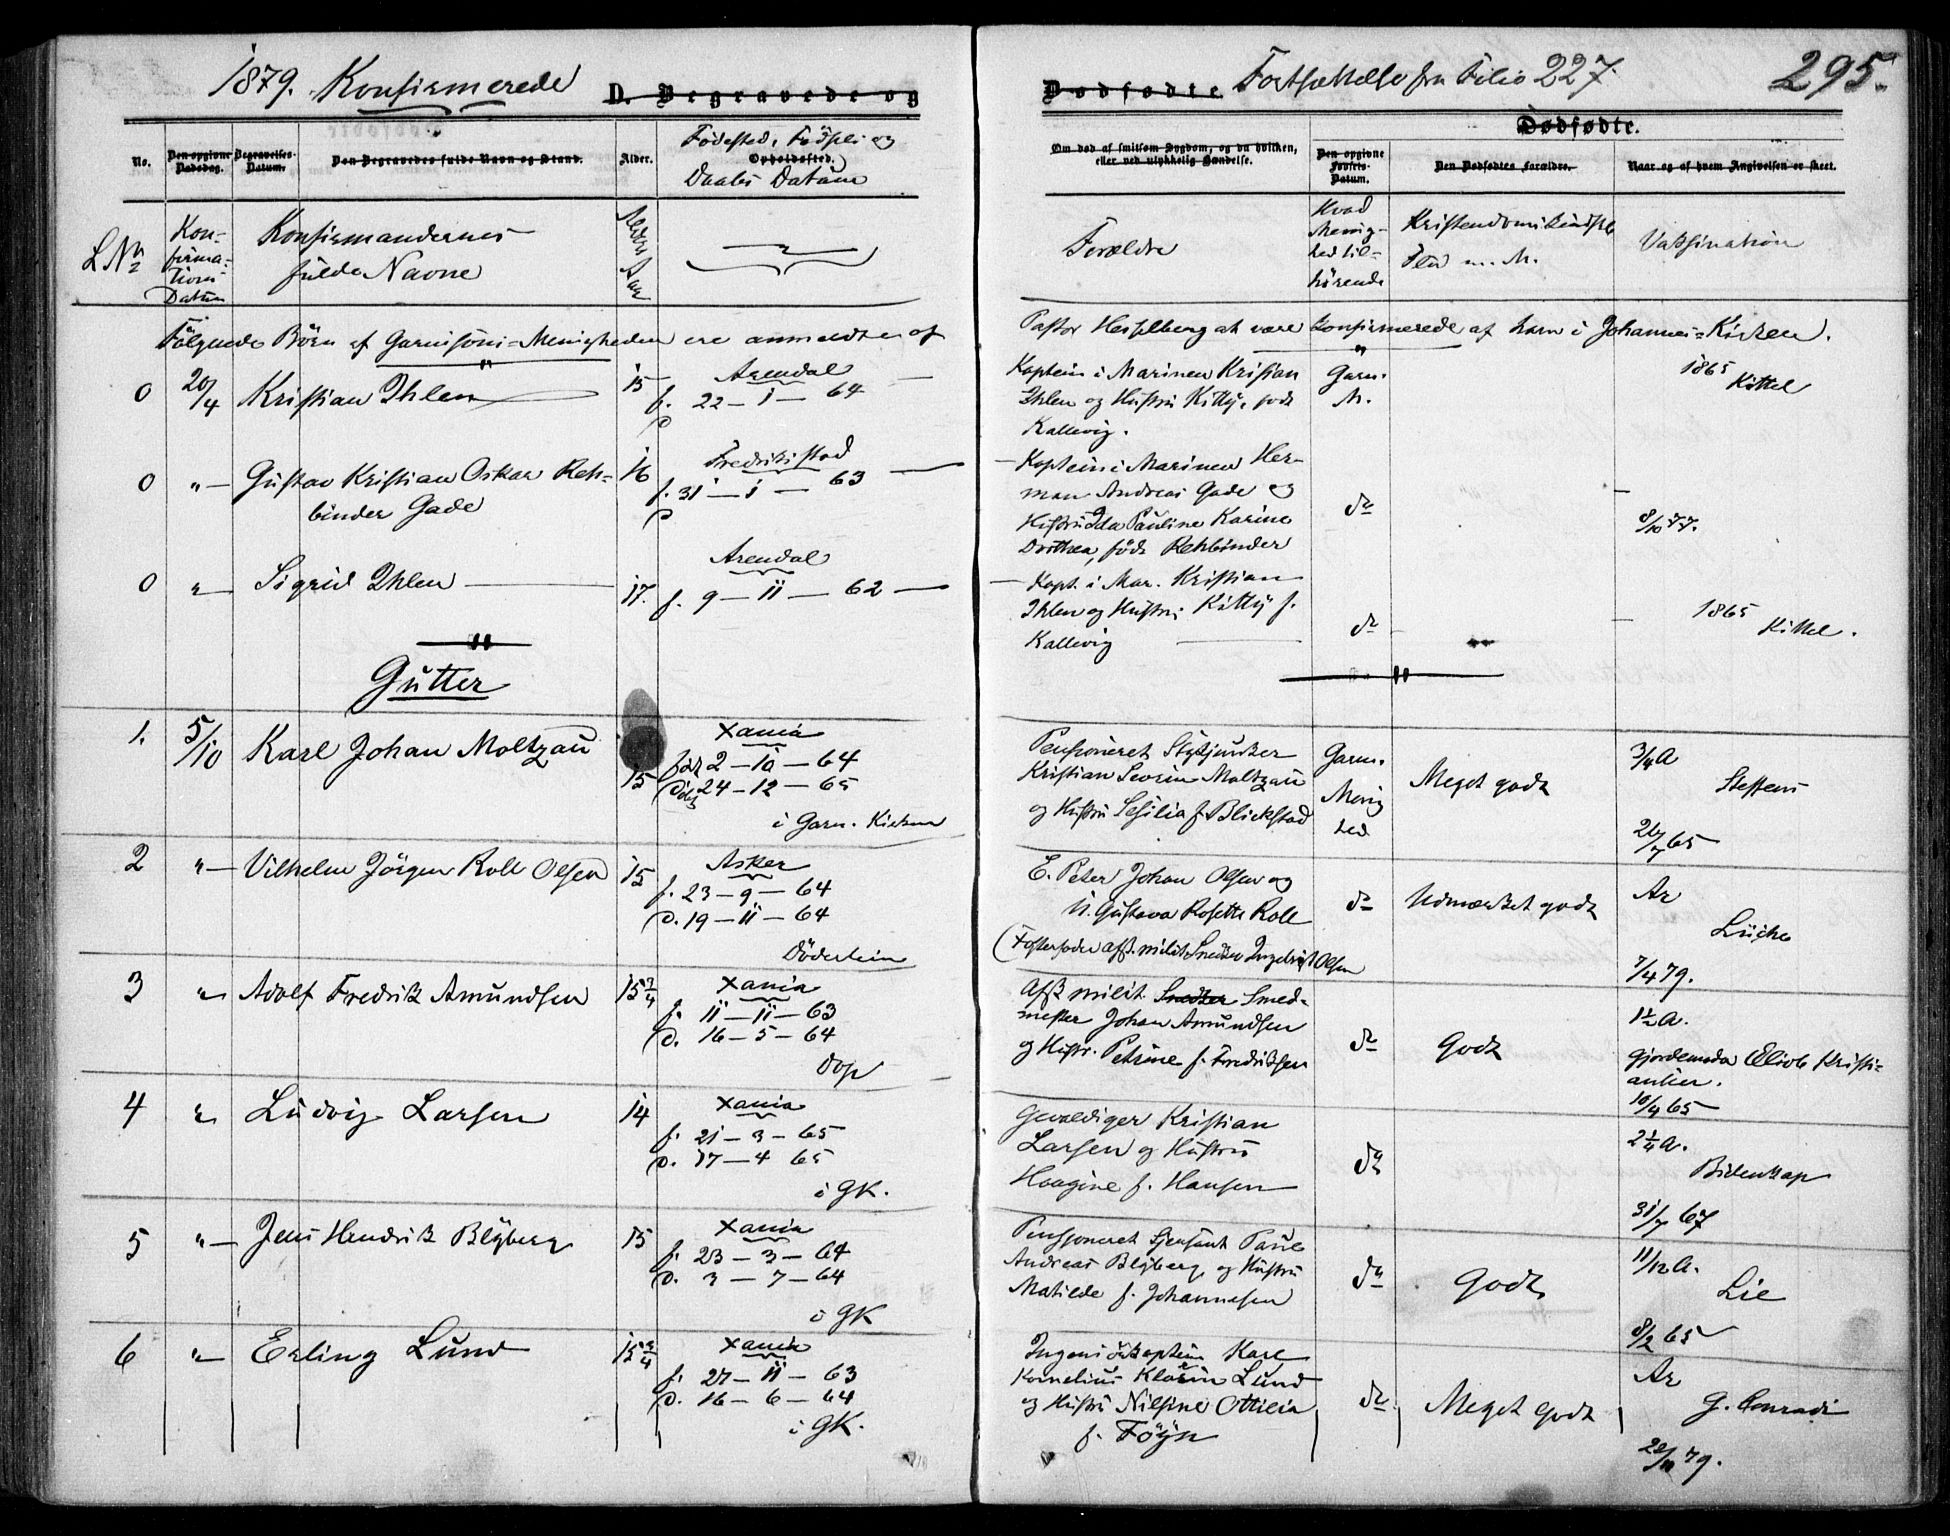 1879. Konfirmerede D. Begravede og
Dødfødte. Fortsættelse fra Folio 227. 295.
No.
Den opgivne Dødsdag.
Begravelses-Datum.
Den Begravedes fulde Navn og Stand.
Alder.
Fødested, Fødsels og
Opholdssted.
Daabs Datum
Om død af smitsom Sygdom, og da hvilken,
eller ved ulykkelig Hændelse.
Dødfødte.
Den opgivne Fødsels-Datum.
Den Dødfødtes Forældre.
Naar og af hvem Angivelsen er skeet.
LNr
Kon-
firma-
tions
Datum
Konfirmandernes
fulde Navne
Alders Aar
Forældre
Hvad
Menig-
hed til-
hørende
Kristendoms Kundskb
Flid m. M.
Vaksination
Følgende Børn af Garnisons-Menigheden ere anmeldte af
Pastor Hesselberg at være konfirmerede af ham i Johannes-Kirken.
0 20/4 Kristian Ihlen 15 Arendal
f. 22 - 1 - 64
Kaptein i Marinen Kristian
Ihlen og Hustru Kitty, født
Kallevig.
Garn.
M.
1865
Kittel
0 "- Gustav Kristian Oskar Reh-
binder Gade
16 Fredriksstad
f. 31 - 1 - 63
Kaptein i Marinen Her-
man Andreas Gade og
Hustru Ida Pauline Karine
Dorthea, født Rehbinder
do
8/10 77.
0 " Sigrid Ihlen 17. Arendal
f. 9 - 11 - 62
Kapt. i Mar. Kristian
Ihlen og Hustru Kitty f.
Kallevig
do
1865
Kittel.
Gutter
1. 5/10 Karl Johan Moltzau 15 Xania
født 2 - 10 - 64
døbt 24 - 12 - 65
i Garn. Kirken
Pensioneret Stykjunker
Kristian Severin Moltzau
og Hustru Sesilia f. Blickstad
Garn.
Menig
hed
Meget godt
3/4 A
Steffens
65
2 "- Vilhelm Jörgen Roll Olsen 15 Asker
f. 23 - 9 - 64
d. 19 - 11 - 64
E. Peter Johan Olsen og
U. Gustava Rosette Roll
do Udmærket godt
Ar
7/4 79.
3 " Adolf Fredrik Amundsen 15 3/4 Xania
f. 11 - 11 - 63
d. 16 - 5 - 64
Dop
Afsk milit. Snedker Smed-
mester Johan Amundsen
og Hustr. Petrine f. Fredriksen
do Godt
1½ A.
Kristi-
ansen.
10/4 65
4 " Ludvig Larsen 14 Xania
f. 21 - 3 - 65
d. 17 - 4 65
i GK.
Gevaldiger Kristian
Larsen og Hustru
Haagine f. Hansen
do
2¼ A.
Bidenkap
31/7 67
5 "- Jens Hendrik Blyberg 15 Xania
f. 23 - 3 - 64
d. 3 - 7 - 64
i GK
Pensioneret Sjersant Paul
Andreas Blyberg og Hustru
Matilde f. Johannesen
do Godt
11/12 A.
Lie
8/2 65
6 "- Erling Lund 15 3/4 Xania
f. 27 - 11 - 63
d. 16 - 6 - 64
i GK.
Ingeniørkaptein Karl
Kornelius Lund
og Hustru Nilsine Ottilia
f. Föyn
do Meget Godt
Ar
G. Conradi
79.